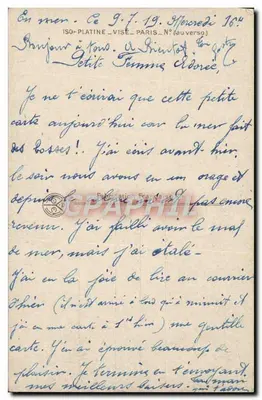 En mer. Ce 9-7-19. Mercredi 16h
ISO-PLATINE_VISÉ_PARIS_N° (au verso)
Bonjour à tous. A Bientôt
Petite Femme Adorée,
Je ne t'écrirai que cette petite
carte aujourd'hui car la mer fait
des bosses! J'ai avant-hier
le soir nous avons eu un orage et
depuis le pas encore
revenu. J'ai failli avoir le mal
de mer, mais j'ai étalé -
J'ai eu la joie de lire au courrier
d'hier (il n'est arrivé à qu'à minuit et
j'ai eu me carte à 1 hre) une gentille
carte. J'en ai éprouvé beaucoup de
plaisir. Je termine en t'envoyant
mes meilleurs baisers. Ton mari
qui t'adore
DELCAMPE